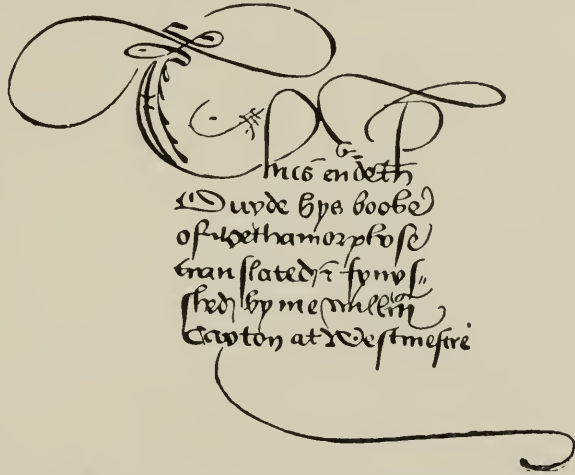 Thus endeth
Ouyde hys booke
of Methamorphose
translated & fynys=
shed by me Willm
Caxton at Westmestre